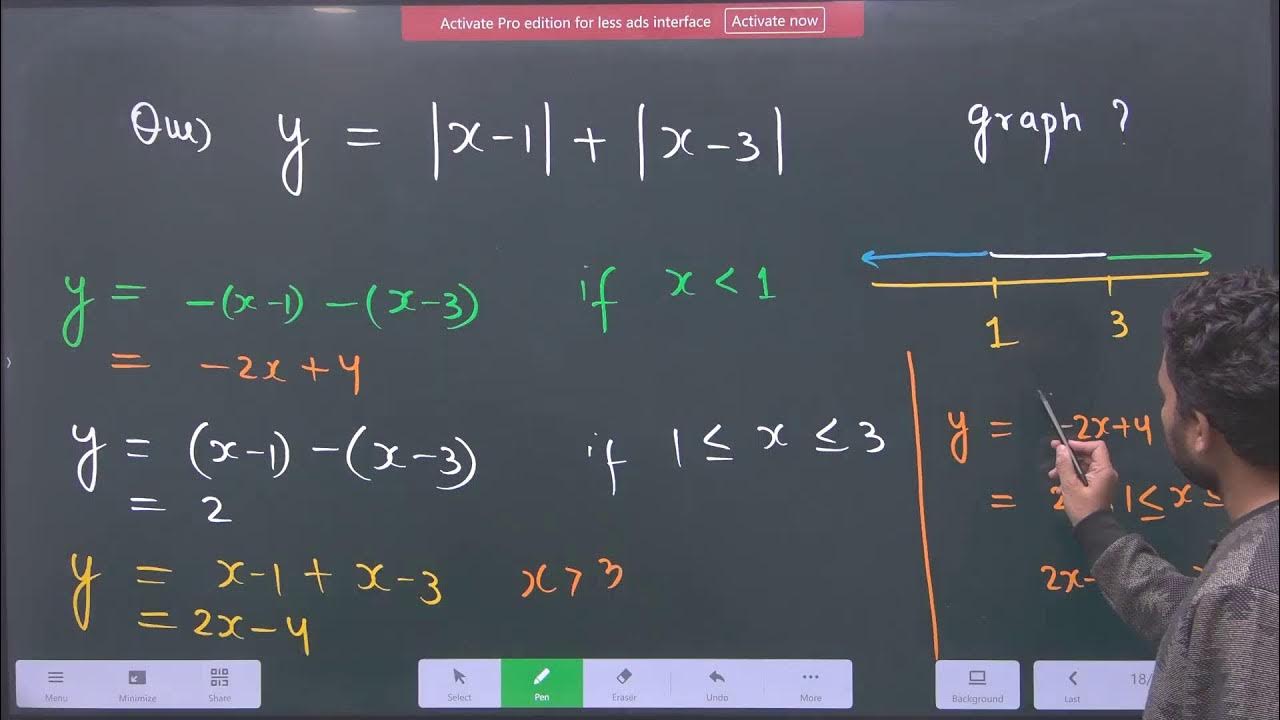 Activate Pro edition for less ads interface Activate now
Que) y = |x-1| + |x-3| graph ?
y = -(x-1) -(x-3) if x < 1
= -2x+4
y = (x-1) -(x-3) if 1 ≤ x ≤ 3
= 2
y = x-1 + x-3 x > 3
= 2x-4
1 3
y = -2x+4
= 2 1 ≤ x ≤
2x-
Menu Minimize Share Select Pen Eraser Undo More Background Last 18/